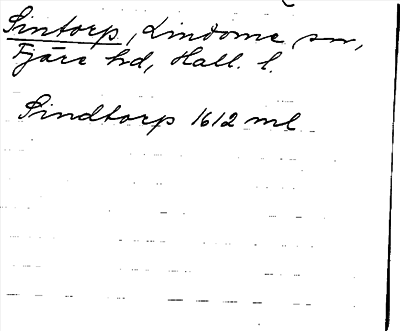 Sintorp, Lindome sn,
Fjäre hd, Hall. l.
Sindtorp 1612 ml